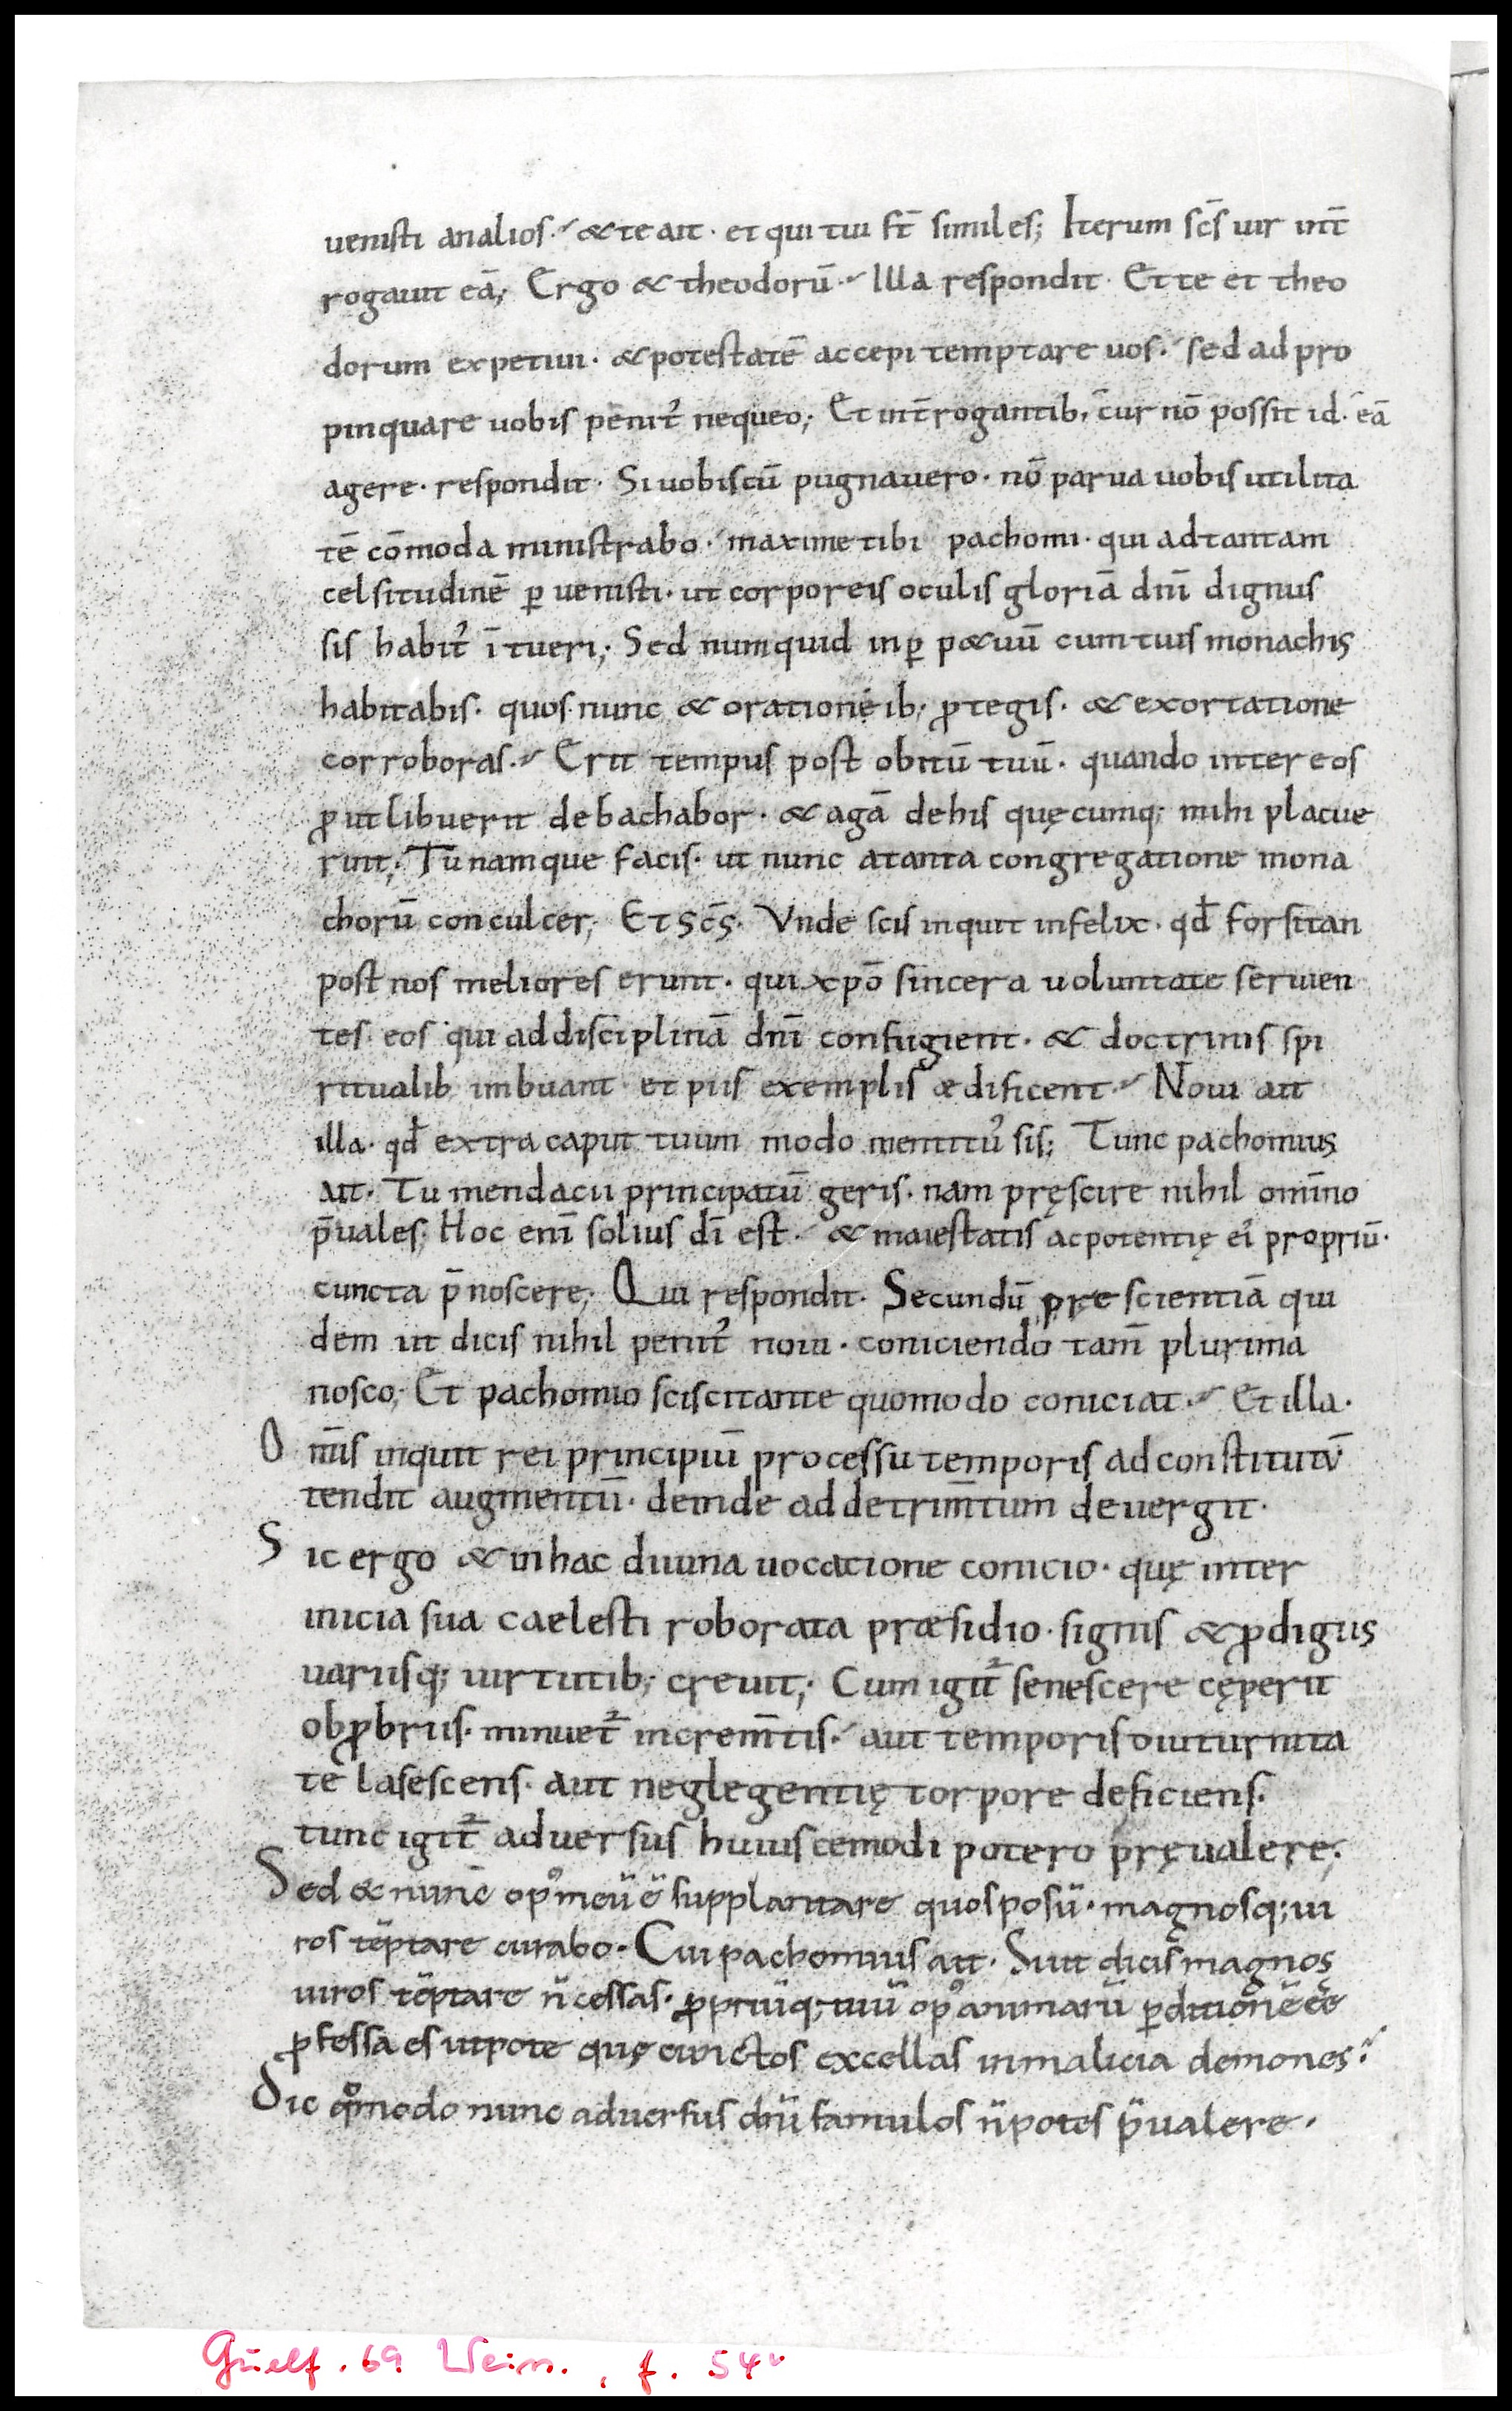 uenisti an alios· &te ait· et qui tui st̄ similes; Iterum scs̄ uir int̄
rogauit eā; Ergo & theodorū· Illa respondit· Et te et theo
dorum expetiui· & potestatē accepi temptare uos· sed ad pro
pinquare uobis penit᾿ nequeo; Et int̄rogantib; cur nō possit id· eā
agere· respondit· Si uobiscū pugnauero· nō parua uobis utilita
tē cōmoda ministrabo· maxime tibi pachomi· qui ad tantam
celsitudinē ꝑuenisti· ut corporeis oculis gloriā dnī dignus
sis habit᾿ ītueri; Sed numquid inꝑp&uū cum tuis monachis
habitabis· quos nunc & orationeib; ꝓtegis· & exortatione
corroboras· Erit tempus post obitū tuū· quando inter eos
ꝓut libuerit debachabor· & agā de his quęcumq; mihi placue
rint; Tu namque facis· ut nunc a tanta congregatione mona
chorū conculcer; Et scs̄· Vnde scis inquit infelix· qđ forsitan
post nos meliores erunt· qui xpō sincera uoluntate seruien
tes eos qui ad disciplinā dnī confugient· & doctrinis spi
ritualib; imbuant· et piis exemplis ædificent· Noui ait
illa· qđ extra caput tuum modo mentitu᾿ sis; Tunc pachomius
ait· Tu mendacii principatū geris· nam pręscire nihil omīno
p̄uales; Hoc enī solius dī est· & maiestatis ac potentię ei᾿ propriū·
cuncta p̄noscere; Qui respondit· Secundū pręscientiā qui
dem ut dicis nihil penit᾿ noui· coniciendo tam̄ plurima
nosco; Et pachomio sciscitante quomodo coniciat· Et illa·
O mīs inquit rei principiū processu temporis ad constitutū
tendit augmentū· deinde ad detrim̄tum deuergit·
S ic ergo & in hac diuina uocacione conicio· quę inter
inicia sua caelesti roborata præsidio· signis & ꝓdigiis
uariisq; uirtutib; creuit; Cum igit᷑ senescere cęperit
obꝓbriis· minuet᷑ increm̄tis· aut temporis diuturnita
te lasescens· aut neglegentię torpore deficiens·
tunc igit᷑ aduersus huiuscemodi potero pręualere;
Sed & nunc op᾿ meū ē supplantare quos posū· magnosq; ui
ros tēptare curabo· Cui pachomius ait· Si ut dicis magnos
uiros tēptare n̄ cessas· ꝓpriūq; tuū op᾿ animarū ꝑditionē ēē
ꝓfessa es utpote quę cunctos excellas in malicia demones·
Dic qͦmodo nunc aduersus dnī famulos n̄ potes p̄ualere·
Guelf. 69 Weim., f. 54v